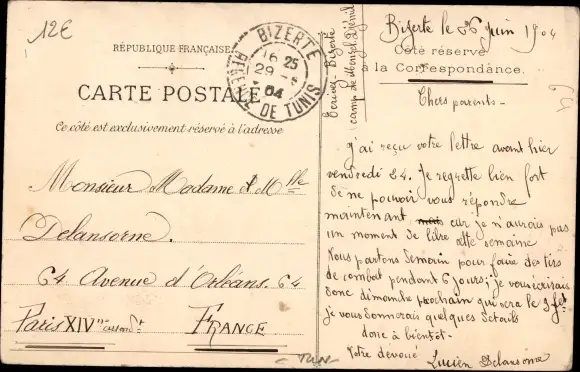 12€
RÉPUBLIQUE FRANÇAISE
CARTE POSTALE
Ce côté est exclusivement réservé à l'adresse
BIZERTE
16 25
29 - 6
04
RÉGENCE DE TUNIS
Monsieur Madame & Mlle
Delansorne.
64 Avenue d'Orléans. 64
Paris XIVme arrondt
FRANCE
Écrivez Bizerte
camp de Menzel Djémil
Bizerte le 26 juin 1904
Côté réservé
à la Correspondance.
Chers parents -
j'ai reçu votre lettre avant hier
vendredi 24. Je regrette bien fort
de ne pouvoir vous répondre
maintenant mais car je n'aurais pas
un moment de libre cette semaine
Nous partons demain pour faire des tirs
de combat pendant 6 jours; je vous écrirais
donc dimanche prochain qui sera le 3 et
je vous donnerais quelques détails
donc à bientôt -
Votre dévoué
Lucien Delansorne
TUN